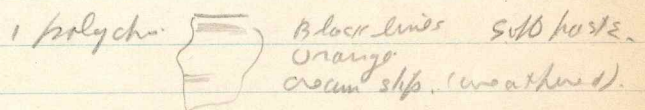 1 polychr. Black lines Soft paste.
Orange
cream slip. (weathered).